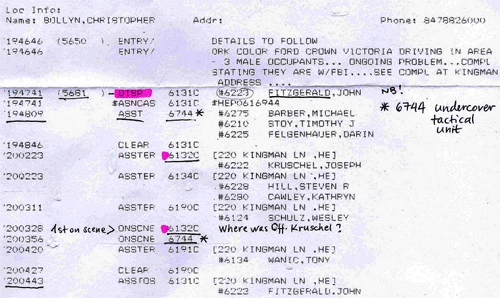 Loc Info:
Name: BOLLYN,CHRISTOPHER Addr: Phone: 8478826000
194646 (5650 ) ENTRY/ DETAILS TO FOLLOW
194646 ENTRY/ DRK COLOR FORD CROWN VICTORIA DRIVING IN AREA
- 3 MALE OCCUPANTS... ONGOING PROBLEM...COMPL
STATING THEY ARE W/FBI....SEE COMPL AT KINGMAN
ADDRESS ....
194741 (5681 ) -DISP 6131C (#6223) FITZGERALD,JOHN NB!
194741 #ASNCAS 6131C #HEP0616944 * 6744 undercover
194809 ASST 6744 * #6275 BARBER,MICHAEL tactical
#6210 STOY,TIMOTHY J unit
#6225 FELGENHAUER,DARIN
194846 CLEAR 6131C
200223 ASSTER 6132C [220 KINGMAN LN ,HE]
#6222 KRUSCHEL,JOSEPH
200223 ASSTER 6134C [220 KINGMAN LN ,HE]
#6228 HILL,STEVEN R
#6280 CAWLEY,KATHRYN
200311 ASSTER 6190C [220 KINGMAN LN ,HE]
#6124 SCHULZ,WESLEY
200328 1st on scene> ONSCNE 6132C Where was Off. Kruschel?
200356 ONSCNE 6744 *
200420 ASSTER 6191C [220 KINGMAN LN ,HE]
#6134 WANIC,TONY
200427 CLEAR 6190C
200443 ASSTOS 6131C [220 KINGMAN LN ,HE]
#6223 FITZGERALD,JOHN